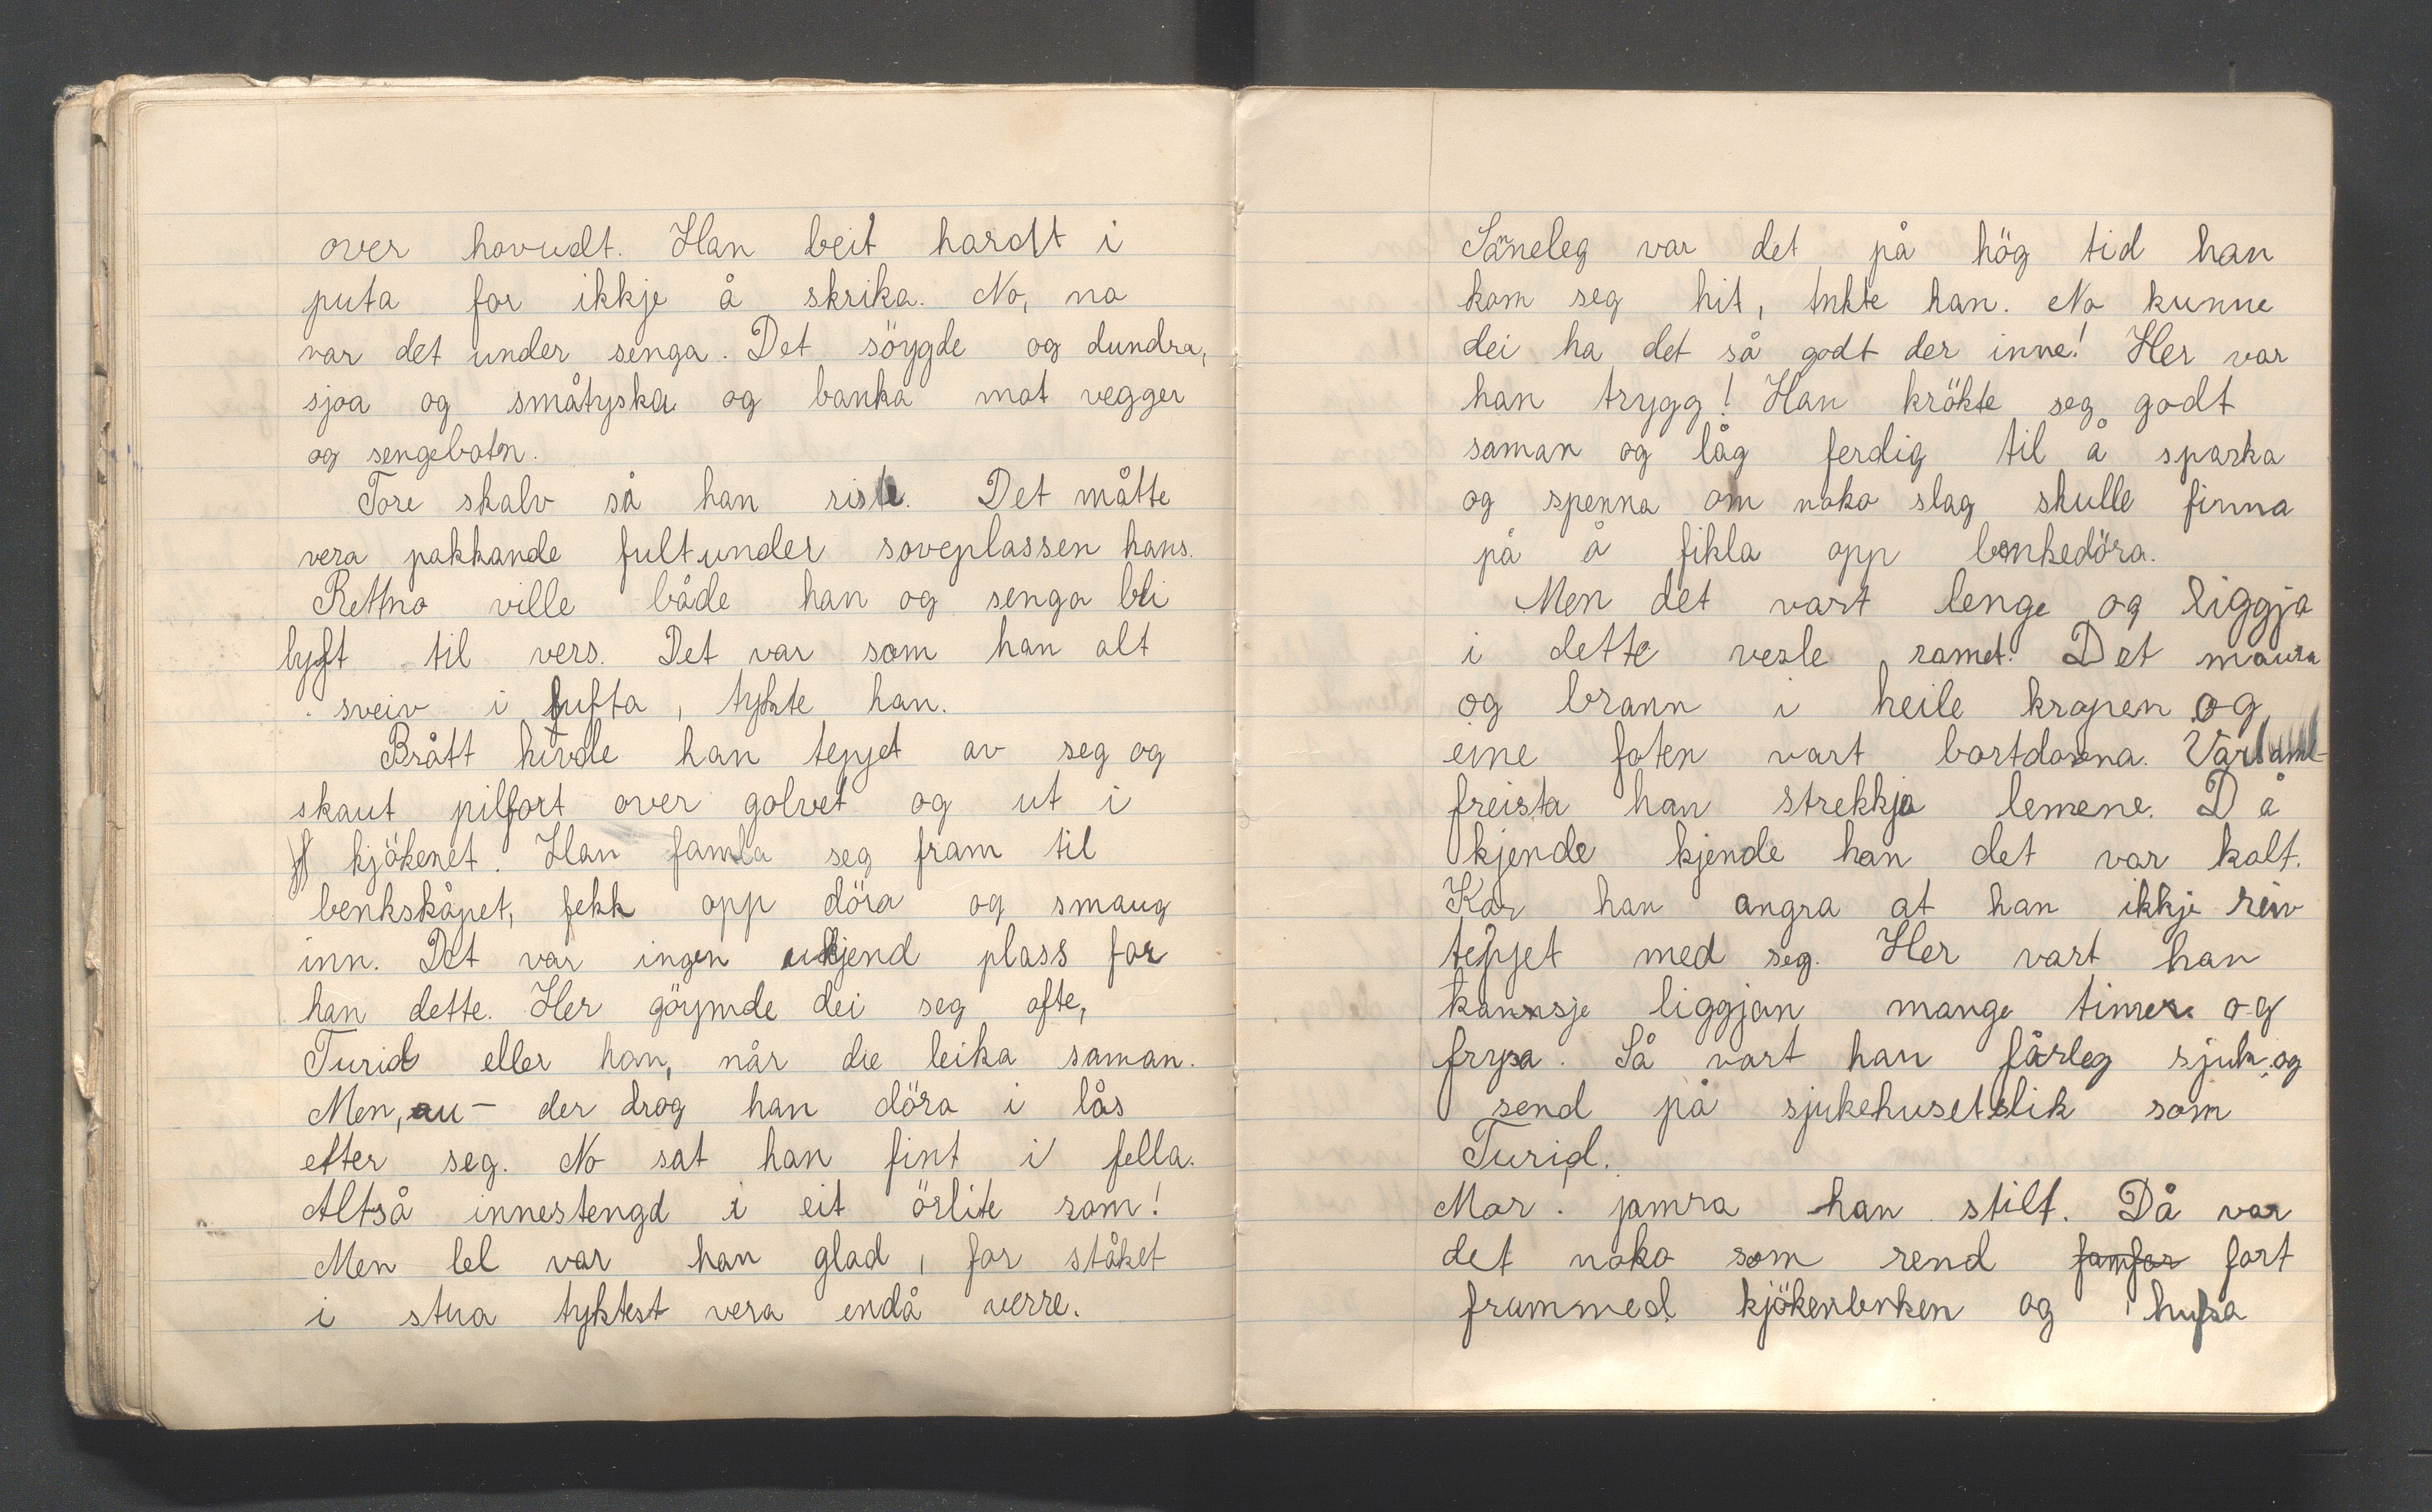 over hovudt. Han beit hardt i
puta for ikkje å skrika. No, no
var det under senga. Det söygde og dundra,
sjoa og småtyska og banka mot vegger
og sengebotn.
Tore skalv så han riste. Det måtte
vera pakkande fult under soveplassen hans.
Rettno ville både han og senga bli
lyft til vers. Det var som han alt
sveiv i lufta, tykte han.
Brått hivde han teppet av seg og
skaut pilfort over golvet og ut i
kjökenet. Han famla seg fram til
benkskåpet, fekk opp döra og smaug
inn. Det var ingen ukjend plass for
han dette. Her göymde dei seg ofte,
Turid eller han, når die leika saman.
Men, au – der drog han döra i lås
etter seg. No sat han fint i fella.
Altså innestengd i eit örlite rom!
Men lel var han glad, for ståket
i stua tyktest vera endå verre.
Såneleg var det på hög tid han
kom seg hit, tnkte han. No kunne
dei ha det så godt der inne! Her var
han trygg! Han krökte seg godt
saman og låg ferdig til å sparka
og spenna om noko slag skulle finna
på å fikla opp benkedöra.
Men det vart lenge og liggja
i dette vesle romet. Det maura
og brann i heile kropen og
eine foten vart bortdovna.
freista han strekkja lemene. Då
kjende kjende han det var kalt.
Kor han angra at han ikkje reiv
teppet med seg. Her vart han
kannsje liggjan mange timer og
frysa. Så vart han fårleg sjuk og
send på sjukehuset slik som
Turid.
Mor. jamra han stilt. Då var
det noko som rend famfor fort
frammed kjökenbnken og hufsa